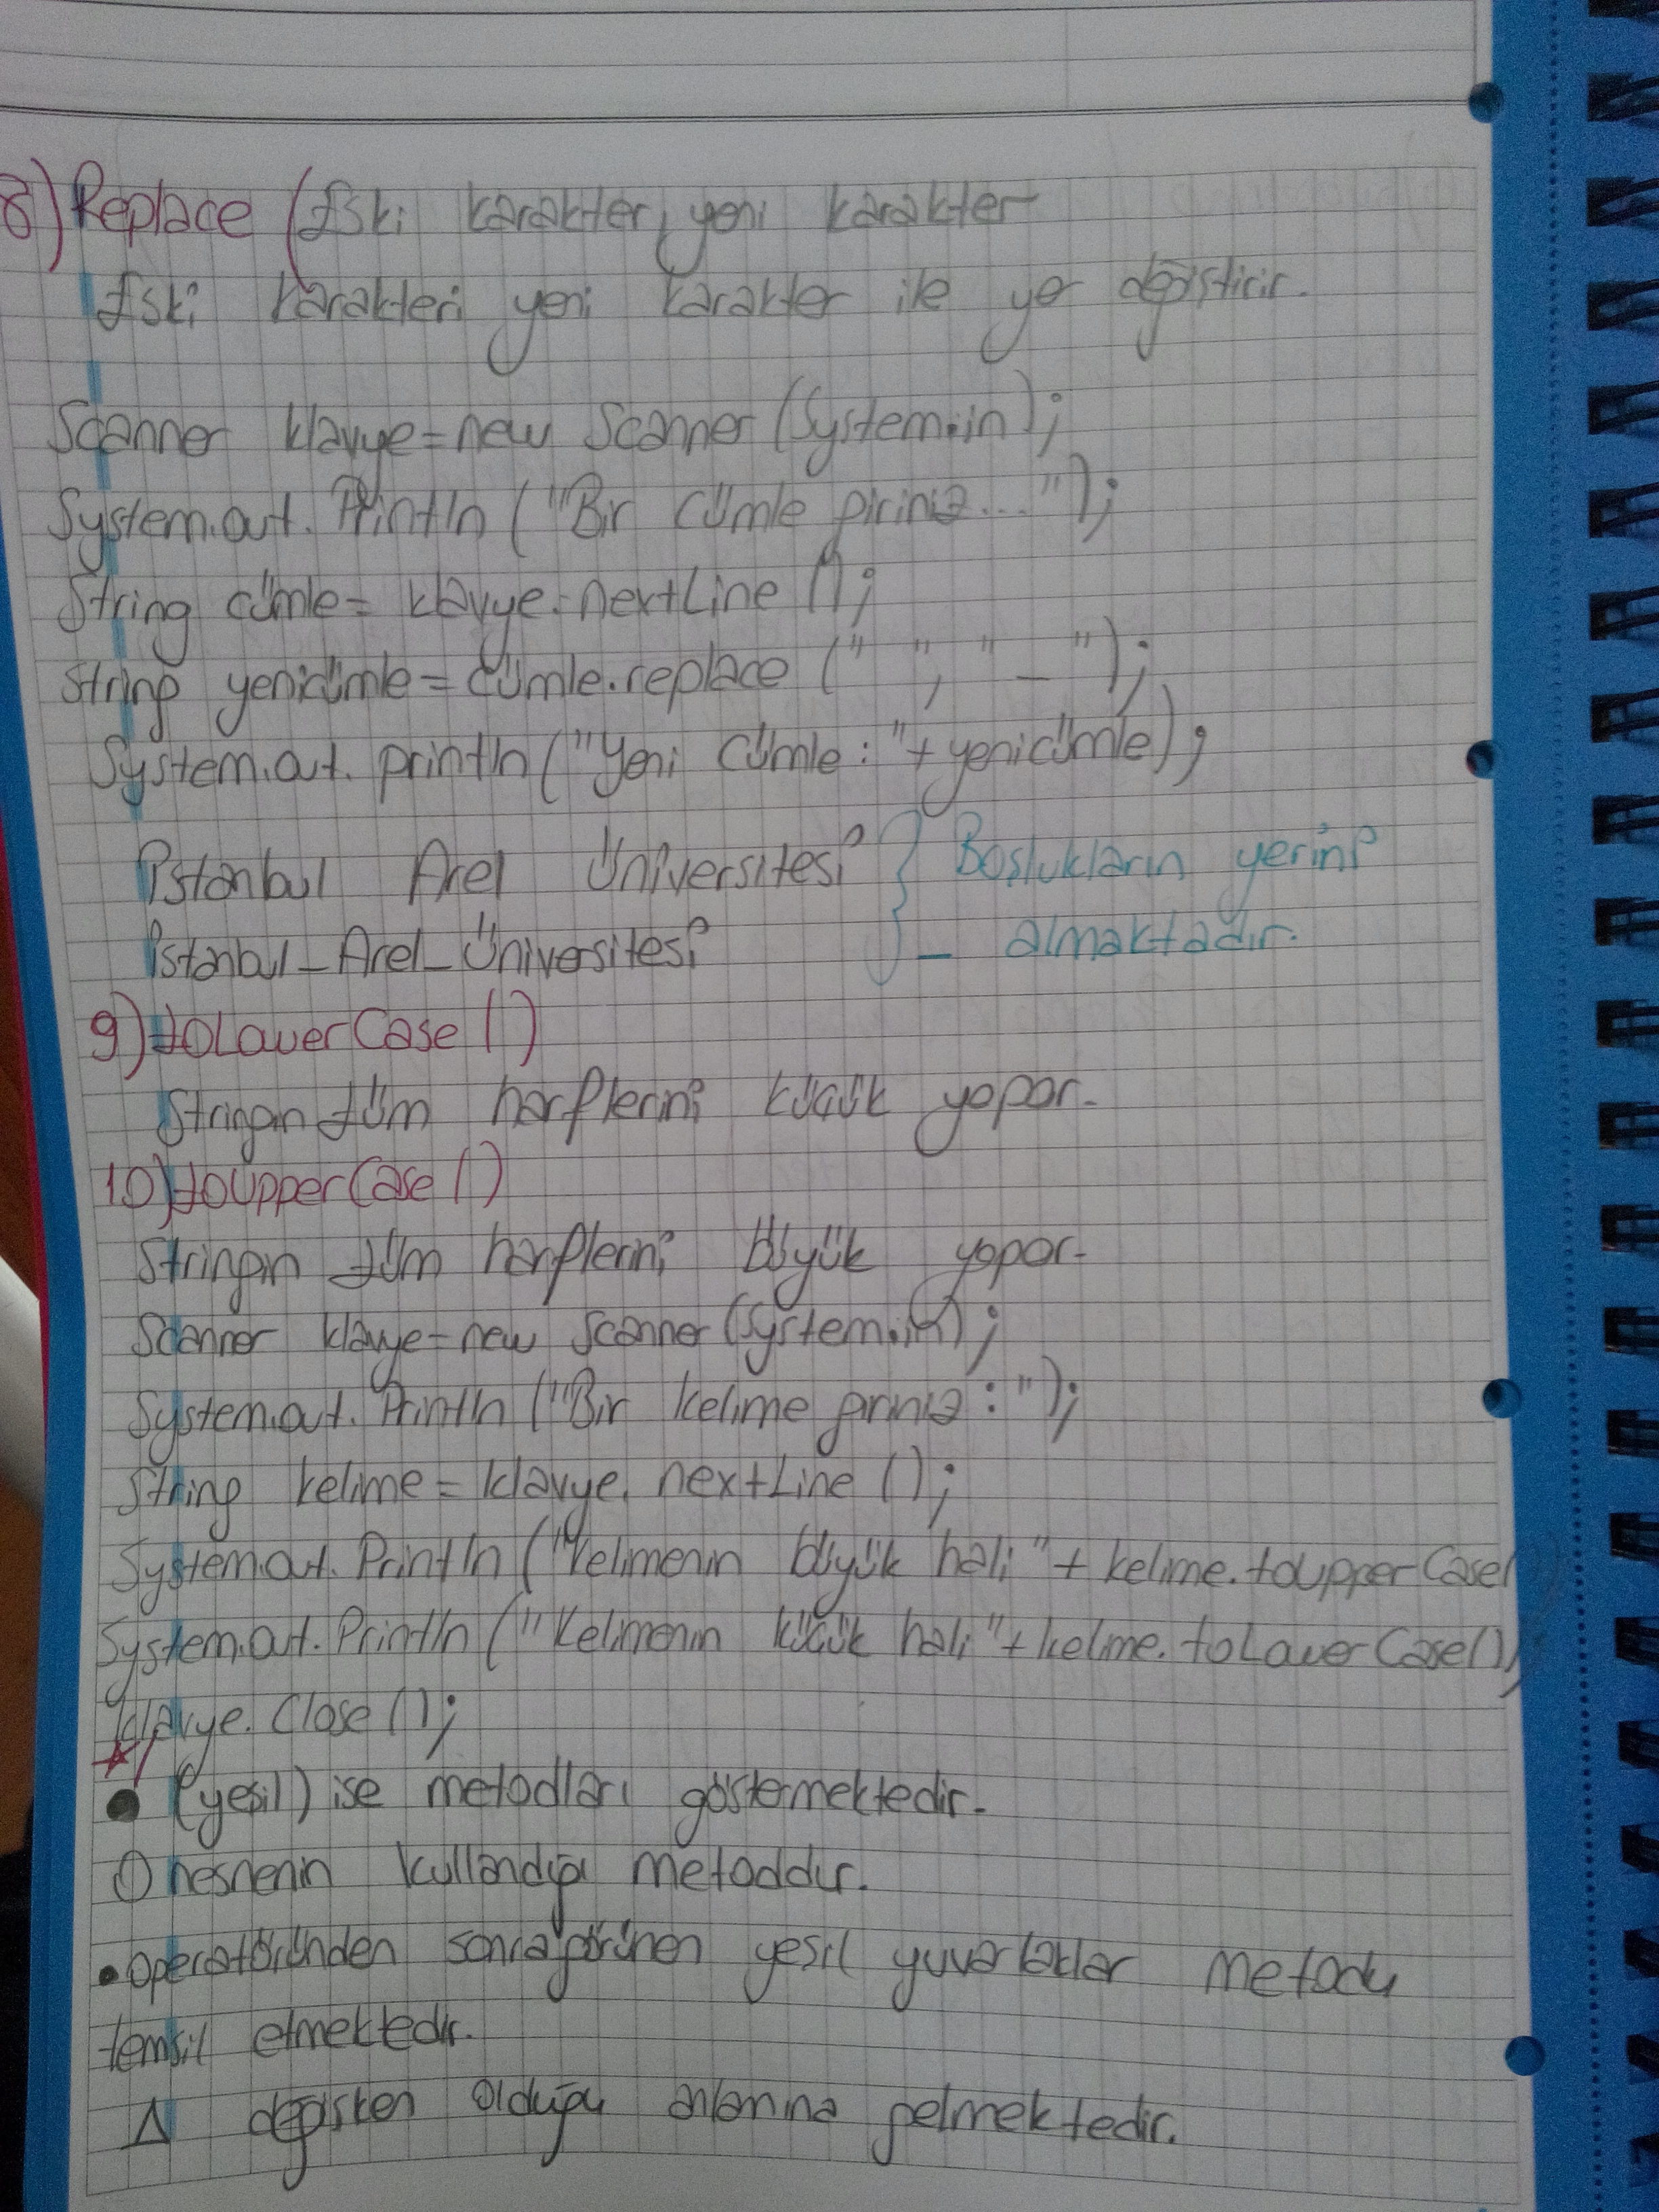 8) Replace (Eski karakter, yeni karakter
Eski karakteri yeni karakter ile yer değiştirir.
Scanner klavye=new Scanner (System.in);
System.out.Println ("Bir cümle giriniz...");
String cümle= klavye.nextLine ();
String yenicümle=cümle.replace (" ", "_");
System.out.println ("Yeni Cümle: "+yenicümle);
İstanbul Arel Üniversitesi } Boşlukların yerini
İstanbul_Arel_Üniversitesi _ almaktadır.
9) toLowerCase ()
Stringin tüm harflerini küçük yapar.
10) toUpperCase ()
Stringin tüm harflerini büyük yapar.
Scanner klavye=new Scanner (System.in);
System.out.Println ("Bir kelime giriniz: ");
String kelime = klavye.nextLine ();
System.out.Println ("Kelimenin büyük hali "+ kelime.toUpperCase(
System.out.Println ("Kelimenin küçük hali "+ kelime.toLowerCase());
klavye.Close ();
● (yeşil) ise metodları göstermektedir.
① nesnenin kullandığı metoddur.
•operatöründen sonra görünen yeşil yuvarlaklar metodu
temsil etmektedir.
Δ değişken olduğu anlamına gelmektedir.